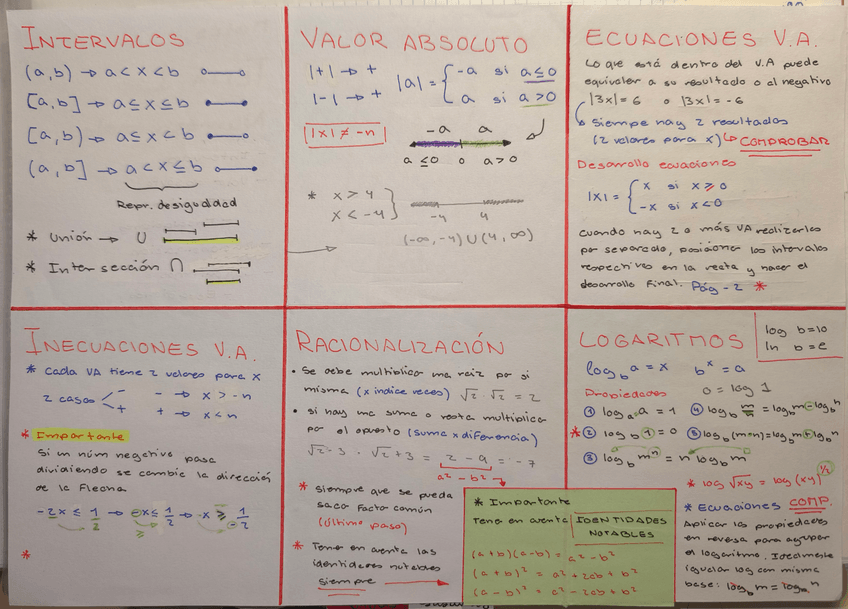 INTERVALOS
(a,b) → a < x < b
[a,b] → a ≤ x ≤ b
[a,b) → a ≤ x < b
(a,b] → a < x ≤ b
Repr. desigualdad
* Unión → U
* Intersección ∩
VALOR ABSOLUTO
|+| → +
|-| → +
|a| = { -a si a ≤ 0
a si a > 0
|x| ≠ -n
-a a
a ≤ 0 0 a > 0
* x > 4
x < -4
-4 4
(-∞, -4) U (4, ∞)
ECUACIONES V.A.
Lo que está dentro del V.A puede
equivaler a su resultado o al negativo
|3x| = 6 o |3x| = -6
Siempre hay 2 resultados
(2 valores para x) → COMPROBAR
Desarrollo ecuaciones
|x| = { x si x ≥ 0
-x si x < 0
Cuando hay 2 o más VA realizarlas
por separado, posicionar los intervalos
respectivos en la recta y hacer el
desarrollo final. Pág - 2 *
INECUACIONES V.A.
* Cada VA tiene 2 valores para x
2 casos - → x > -n
+ → x < n
* Importante
Si un núm negativo pasa
dividiendo se cambie la dirección
de la flecha
-2x ≤ 1/2 → -x ≤ 1/2 → x ≥ 1/-2
≥
*
RACIONALIZACIÓN
• Se debe multiplicar una raiz por si
misma (x indice veces) √2 · √2 = 2
• si hay una suma o resta multiplica
por el opuesto (suma x diferencia)
√2 - 3 · √2 + 3 = 2 - 9 = -7
a² - b²
* Siempre que se pueda
saca factor común
(último paso)
* Tener en cuenta las
identidades notables
siempre
* Importante
Tener en cuenta IDENTIDADES
NOTABLES
(a+b)(a-b) = a² - b²
(a+b)² = a² + 2ab + b²
(a-b)² = a² - 2ab + b²
LOGARITMOS
log b=10
ln b=e
log_b a = x b^x = a
Propiedades 0 = log 1
① log_a a = 1 ④ log_b m/n = log_b m - log_b n
* ② log_b 1 = 0 ⑤ log_b (m·n) = log_b m + log_b n
③ log_b m^n = n log_b m
* log √xy = log (xy)^1/2
* Ecuaciones COMP.
Aplicar las propiedades
en reversa para agrupar
el logaritmo. Idealmente
igualar log con misma
base: log_b m = log_b n